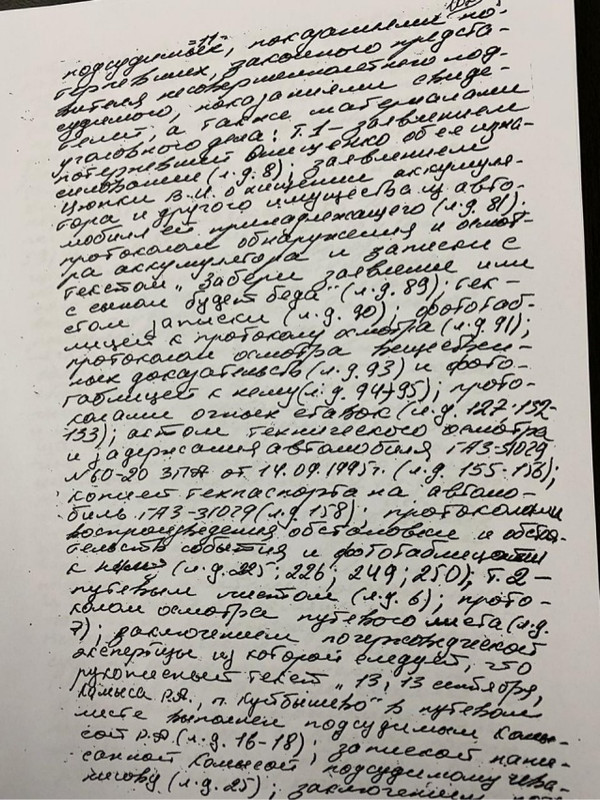 - 11 -
подсудимых, показаниями по-
терпевших, законного предста-
вителя несовершеннолетнего под-
судимого, показаниями свиде-
телей, а также материалами
уголовного дела: т.1 – заявлением
потерпевшей Онищенко об ее изна-
силовании (л.д. 8); заявлением
Цюпки В.И. о хищении аккумуля-
тора и другого имущества из авто-
мобиля ей принадлежащего (л.д. 81);
протоколом обнаружения и осмот-
ра аккумулятора и записки с
текстом „Забери заявление или
с сыном будет беда" (л.д. 89); тек-
стом записки (л.д. 90); фототаб-
лицей к протоколу осмотра (л.д. 91);
протоколом осмотра веществен-
ных доказательств (л.д. 93) и фото-
таблицей к нему (л.д. 94, 95); прото-
колами очных ставок (л.д. 127-152-
153); актом технического осмотра
и задержания автомобиля ГАЗ-31029
№ 60-20 ЗПА от 14.09.1995 г. (л.д. 155-156);
копией техпаспорта на автомо-
биль ГАЗ-31029 (л.д. 158); протоколами
воспроизведения обстановки и обсто-
тельств события и фототаблицами
к ним (л.д. 225; 226; 249; 250); т.2 –
путевым листом (л.д. 6); прото-
колом осмотра путевого листа (л.д.
7); заключением почерковедческой
экспертизы из которой следует, что
рукописный текст „13, 13 сентября,
Камыса Р.А., п. Куйбышево" в путевом
листе выполнен подсудимым Камы-
сой Р.А. (л.д. 16-18); запиской напи-
санной Камысой подсудимому
(л.д. 25); заключением